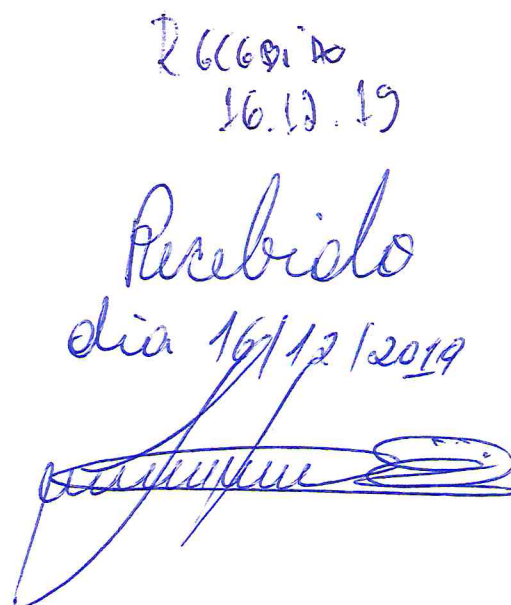 RECEBIDO
16.12.19
Recebido
dia 16/12/2019